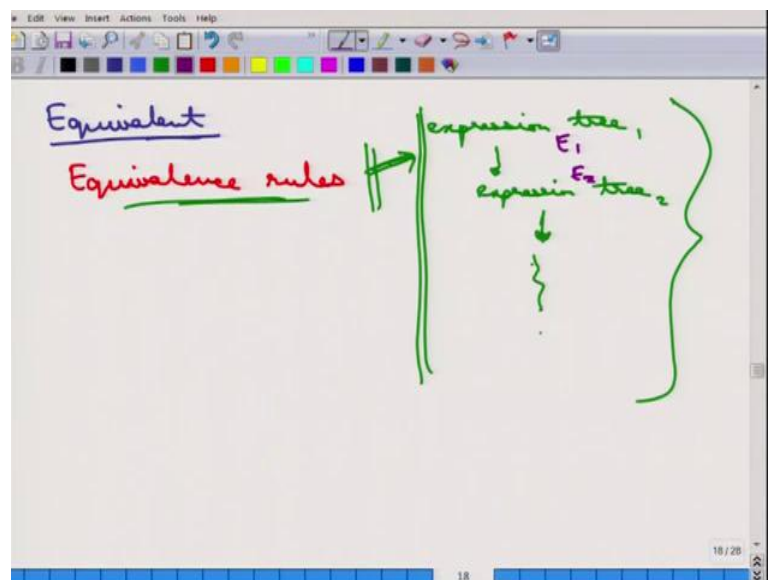 Edit View Insert Actions Tools Help
Equivalent
Equivalence rules
expression tree 1
E1
E2
expression tree 2
18 / 28
18